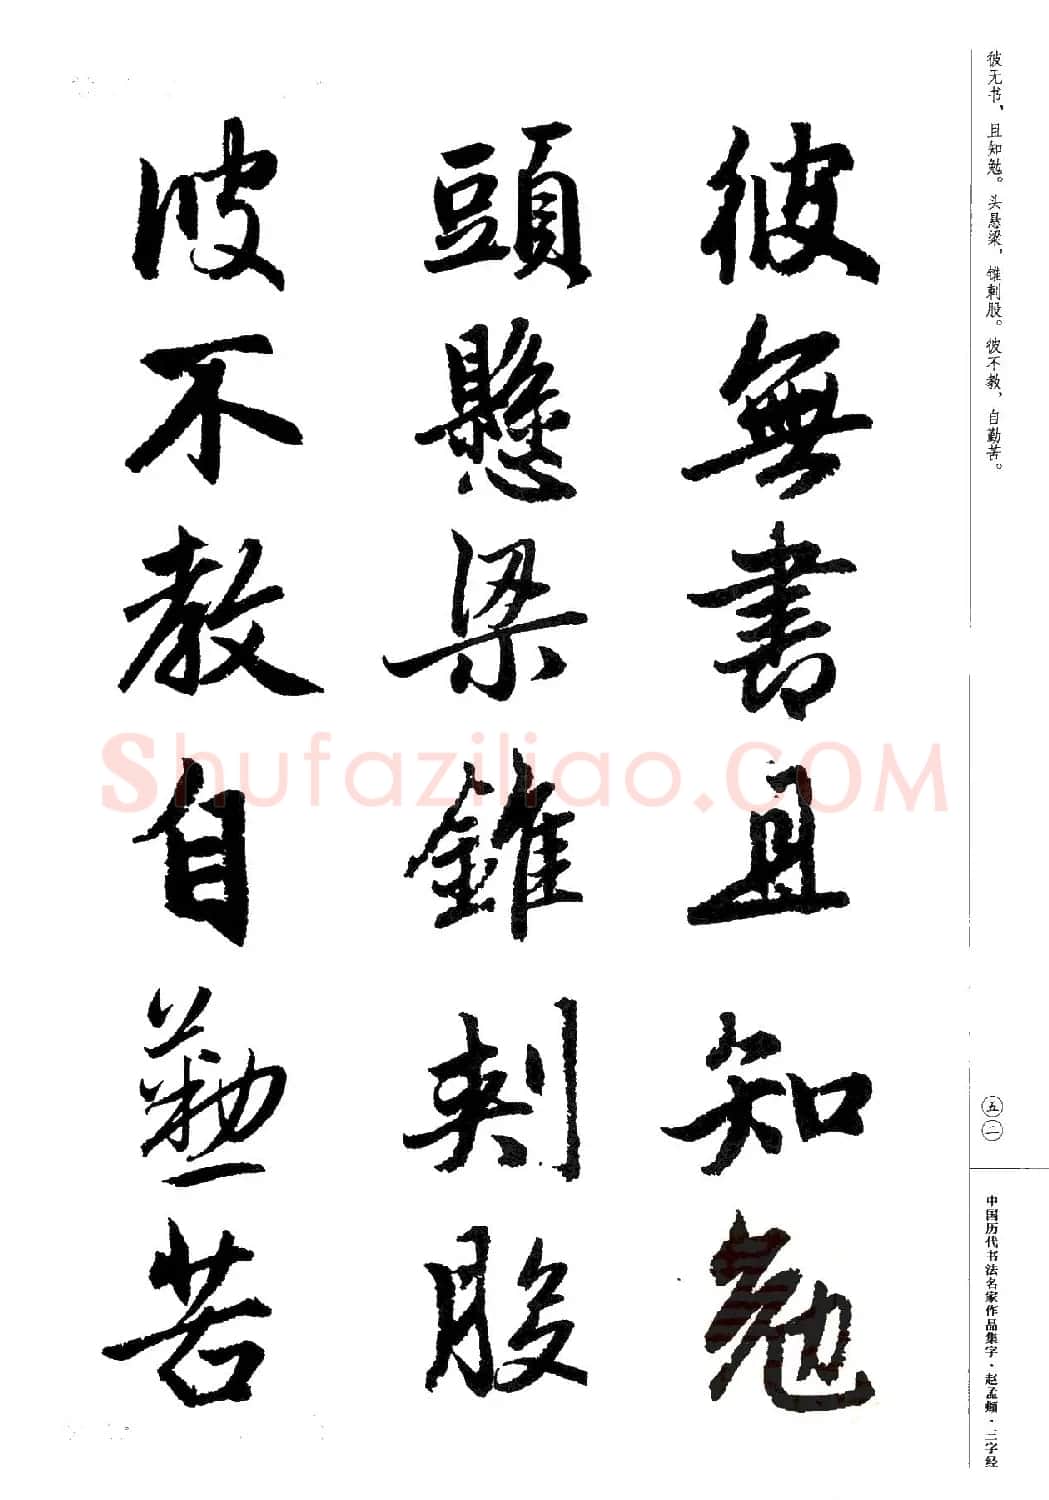 彼无书，且知勉。头悬梁，锥刺股。彼不教，自勤苦。
彼無書且知勉
頭懸梁錐刺股
彼不教自勤苦
五二
中国历代书法名家作品集字·赵孟頫·三字经
Shufaziliao.COM